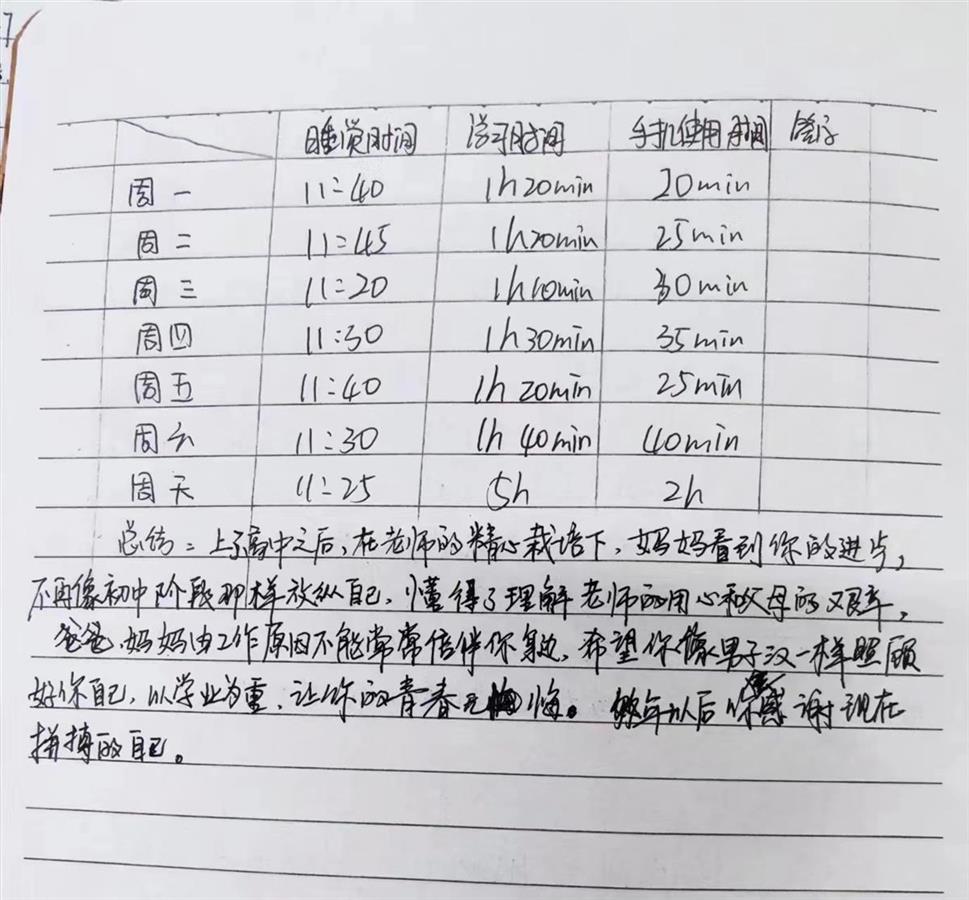 睡觉时间 学习时间 手机使用时间 签字
周一 11:40 1h20min 20min
周二 11:45 1h20min 25min
周三 11:20 1h10min 30min
周四 11:30 1h30min 35min
周五 11:40 1h 20min 25min
周六 11:30 1h 40min 40min
周天 11:25 5h 2h
总结:上了高中之后,在老师的精心栽培下,妈妈看到你的进步,
不再像初中阶段那样放纵自己,懂得了理解老师的用心和父母的艰辛,
爸爸、妈妈由工作原因不能常常陪伴你身边,希望你像男子汉一样照顾
好你自己,以学业为重,让你的青春无悔。 年以后你会感谢现在
拼搏的自己。